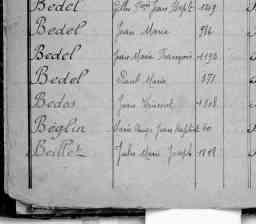 Bedel Gilles Jean Bapt. 1209
Bedel Jean Marie 986
Bedel Jean Marie François 1193
Bedel Paul Marie 571
Bedos Jean Vincent 1808
Béglin Marie Ange Jean Baptiste 60
Beillet Jules Marie Joseph 1808